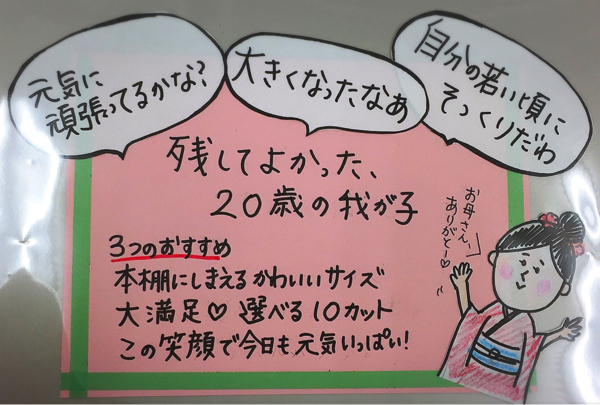 元気に
頑張ってるかな?
大きくなったなあ
自分の若い頃に
そっくりだわ
残してよかった、
20歳の我が子
お母さん、
ありがとー♡
3つのおすすめ
本棚にしまえるかわいいサイズ
大満足♡選べる10カット
この笑顔で今日も元気いっぱい!